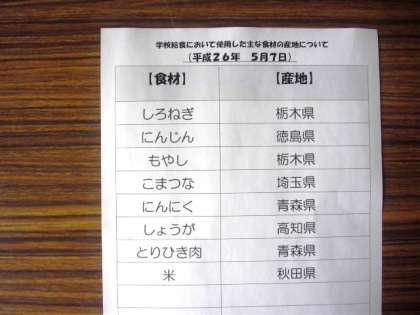 学校給食において使用した主な食材の産地について
(平成26年 5月7日)
【食材】 【産地】
しろねぎ 栃木県
にんじん 徳島県
もやし 栃木県
こまつな 埼玉県
にんにく 青森県
しょうが 高知県
とりひき肉 青森県
米 秋田県